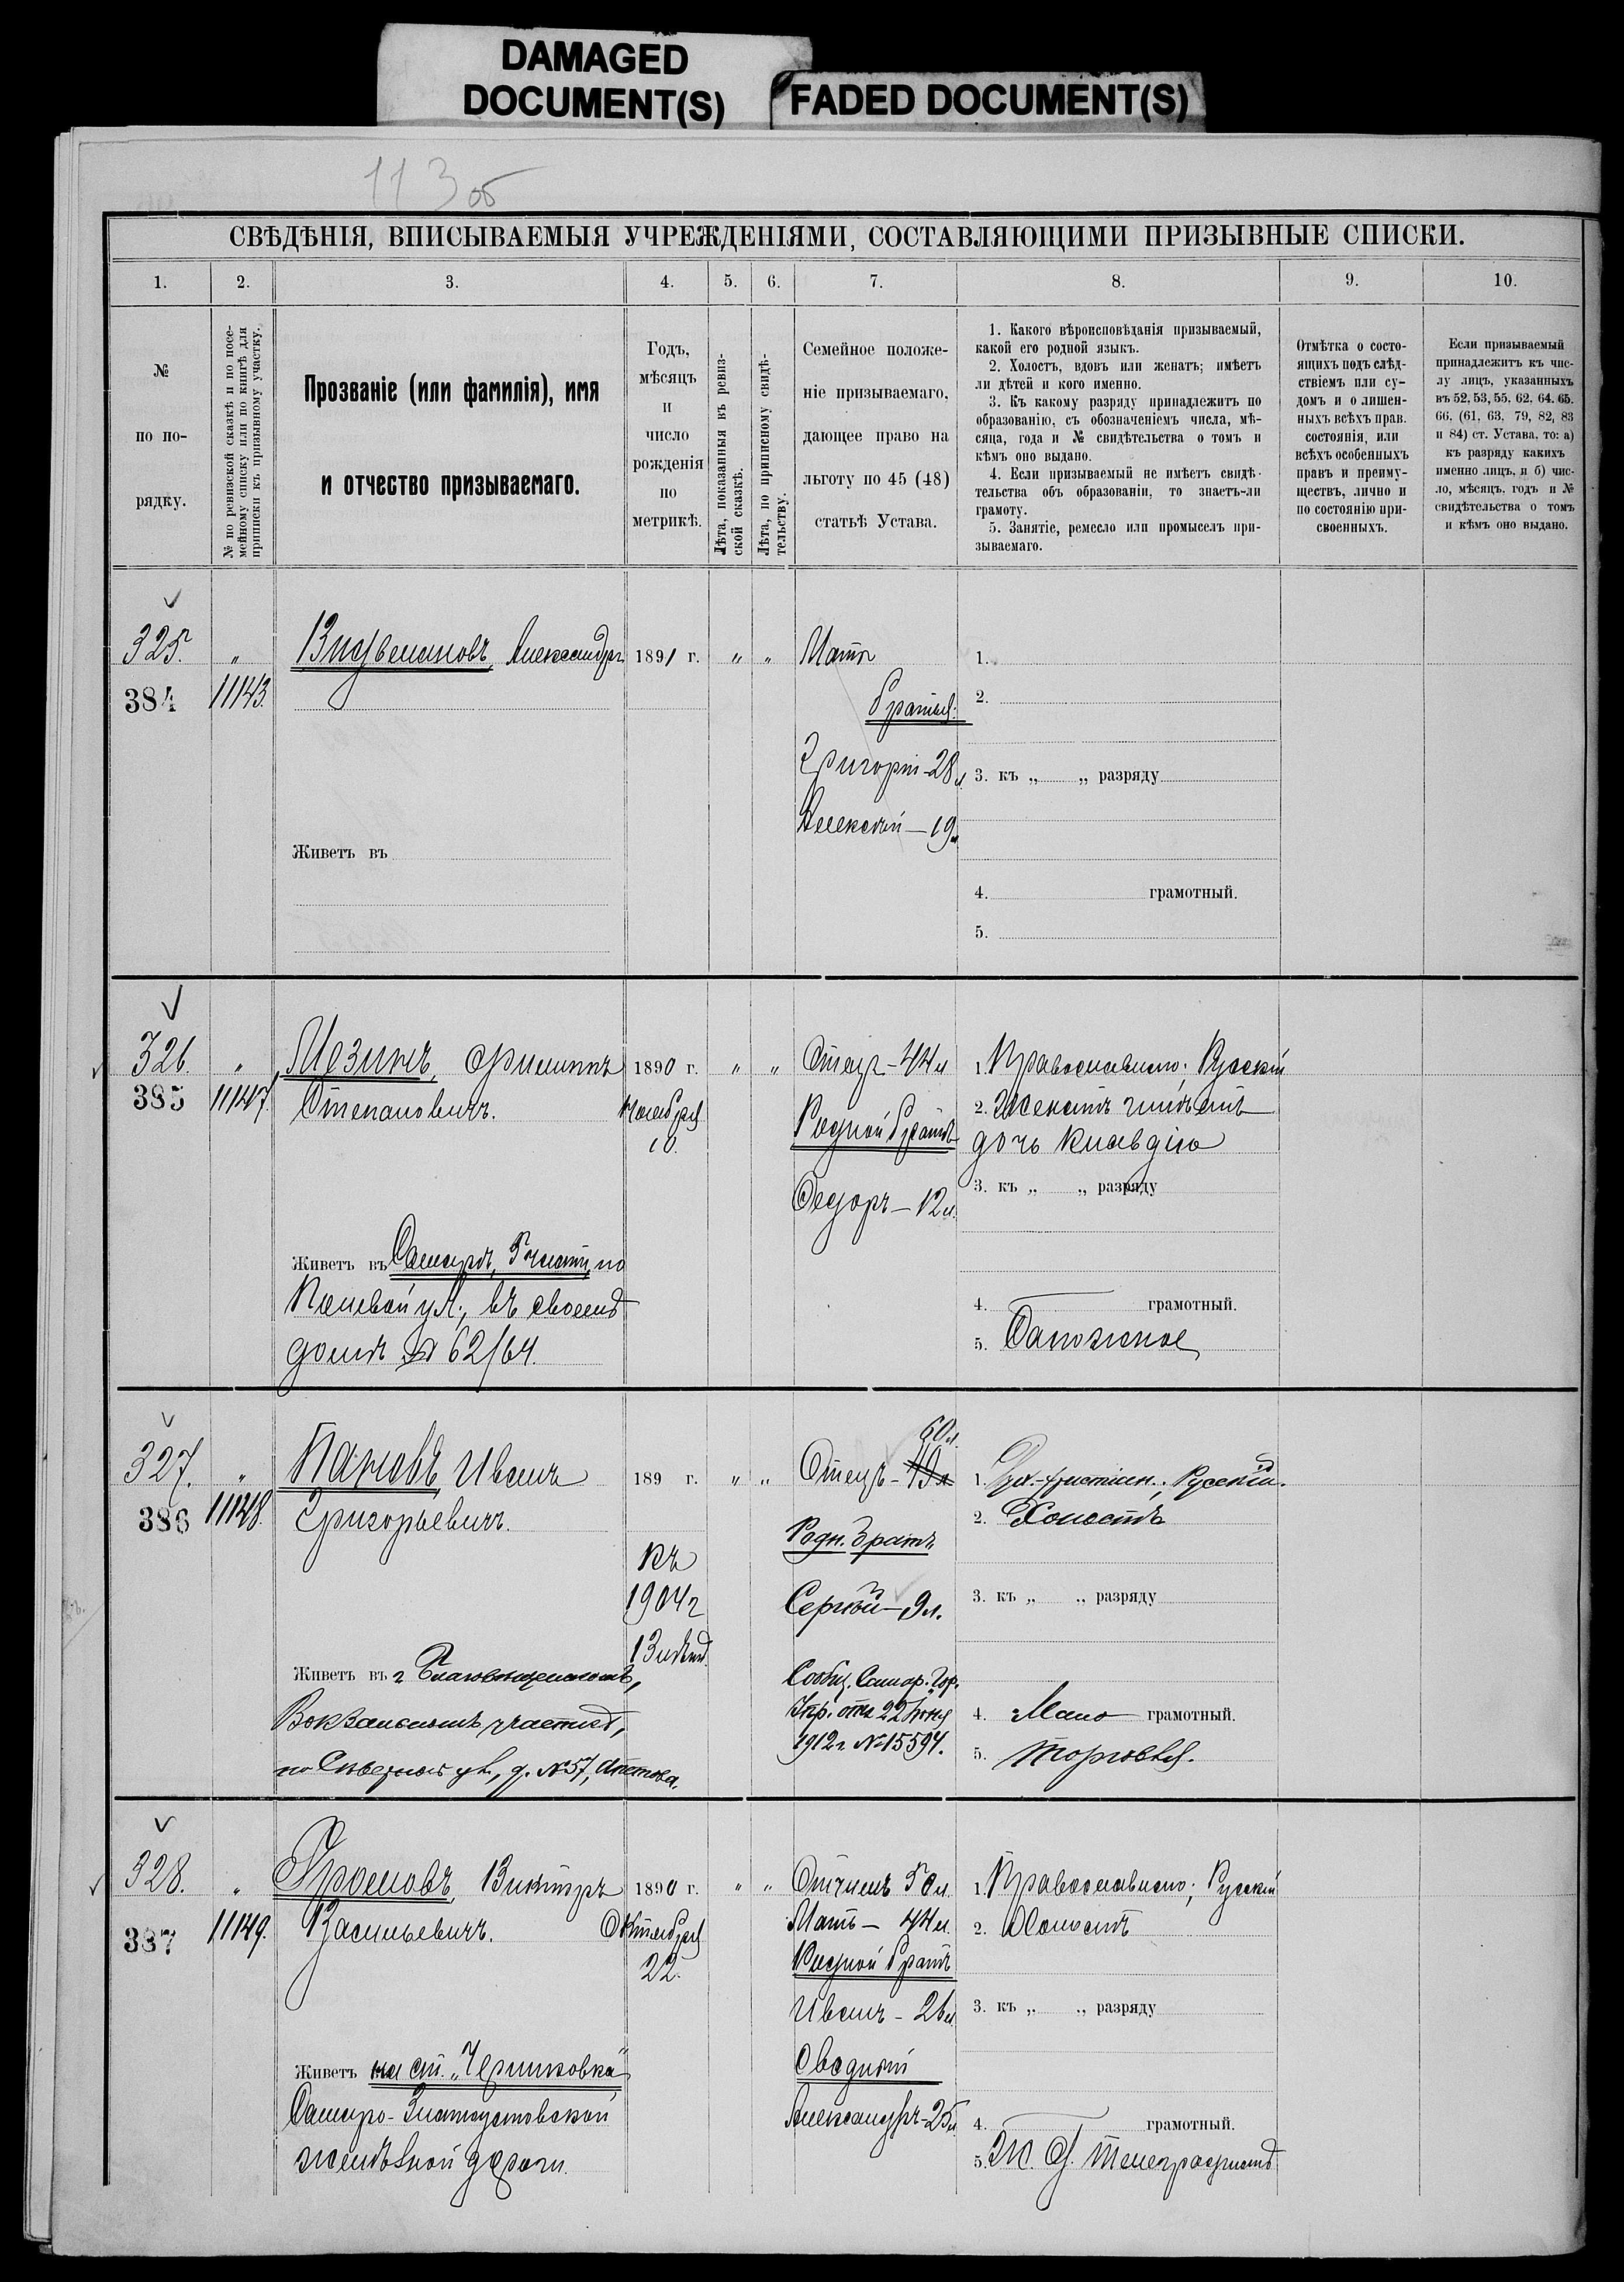 DAMAGED
DOCUMENT(S)
FADED DOCUMENT(S)
113 об
СВѢДѢНІЯ, ВПИСЫВАЕМЫЯ УЧРЕЖДЕНІЯМИ, СОСТАВЛЯЮЩИМИ ПРИЗЫВНЫЕ СПИСКИ.
1. 2. 3. 4. 5. 6. 7. 8. 9. 10.
№
по по-
рядку.
№ по ревизской сказкѣ и по посе-
мейному списку или по книгѣ для
приписки къ призывному участку.
Прозваніе (или фамилія), имя
и отчество призываемаго.
Годъ,
мѣсяцъ
и
число
рожденія
по
метрикѣ.
Лѣта, показанныя въ ревиз-
ской сказкѣ.
Лѣта, по приписному свидѣ-
тельству.
Семейное положе-
ніе призываемаго,
дающее право на
льготу по 45 (48)
статьѣ Устава.
1. Какого вѣроисповѣданія призываемый,
какой его родной языкъ.
2. Холостъ, вдовъ или женатъ; имѣетъ
ли дѣтей и кого именно.
3. Къ какому разряду принадлежитъ по
образованію, съ обозначеніемъ числа, мѣ-
сяца, года и № свидѣтельства о томъ и
кѣмъ оно выдано.
4. Если призываемый не имѣетъ свидѣ-
тельства объ образованіи, то знаетъ-ли
грамоту.
5. Занятіе, ремесло или промыселъ при-
зываемаго.
Отмѣтка о состо-
ящихъ подъ слѣд-
ствіемъ или су-
домъ и о лишен-
ныхъ всѣхъ прав.
состоянія, или
всѣхъ особенныхъ
правъ и преиму-
ществъ, лично и
по состоянію при-
своенныхъ.
Если призываемый
принадлежитъ къ чис-
лу лицъ, указанныхъ
въ 52, 53, 55, 62, 64, 65,
66, (61, 63, 79, 82, 83
и 84) ст. Устава, то: а)
къ разряду какихъ
именно лицъ, и б) чис-
ло, мѣсяцъ, годъ и №
свидѣтельства о томъ
и кѣмъ оно выдано.
325. „ Александръ 1891 г. „ „ Мать 1.
384 11143. Братья: 2.
Григорій - 28 л. 3. къ „ „ разряду
Алексѣй — 19 л.
Живетъ въ
4. грамотный.
5.
326. „ Мезинъ, Филиппъ 1890 г. „ „ Отецъ - 44 л 1. Православнаго; Русскій
385 11147. Степановичъ. Ноября 2. Женатъ имѣетъ
10. Родной братъ дочь Клавдію
Федоръ — 12 л. 3. къ „ „ разряду
Живетъ въ Самарѣ, 5 части, по
Полевой ул., въ своемъ 4. грамотный.
домѣ № 62/64. 5. Сапожное
327. „ Пановъ, Иванъ 189 г. „ „ Отецъ - 49 л 60 л. 1. Русскій.
386 11148. Григорьевичъ. 2. Холостъ
Родн. братъ
къ
1904 г Сергѣй — 9 л. 3. къ „ „ разряду
Живетъ въ г. Благовѣщенскѣ, Сообщ. Самар. Гор.
Вокзальномъ участкѣ, Упр. отъ 22 Іюня 4. Мало грамотный.
по Сѣверной ул., д. № 57, 1912 г. № 15594. 5. торговля.
328. „ Громовъ, Викторъ 1890 г. „ „ Отчимъ 50 л. 1. Православнаго; Русскій
387 11149. Васильевичъ. Октября Мать — 44 л. 2. Холостъ
22. Родной братъ
Иванъ - 26 л. 3. къ „ „ разряду
Живетъ на ст. „Черниковка“ Сводный
Самаро-Златоустовской Александръ - 25 л. 4. грамотный.
желѣзной дороги. 5. Ж. д. телеграфистъ